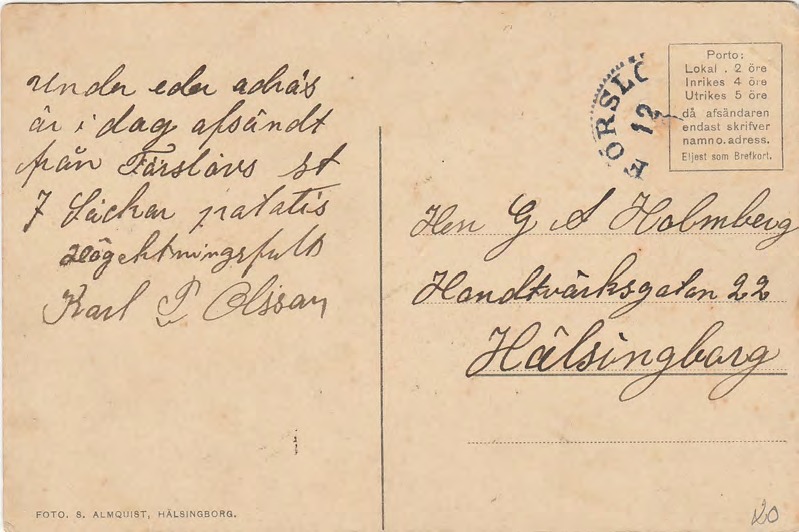 under eder adräs
är i dag afsändt
från Förslövs st
7 Säckar patatis
Högektningsfullt
Karl P Olsson
FOTO. S. ALMQUIST, HÄLSINGBORG.
FÖRSLÖ
12
Porto:
Lokal . 2 öre
Inrikes 4 öre
Utrikes 5 öre
då afsändaren
endast skrifver
namn o. adress.
Eljest som Brefkort.
Herr G A Holmberg
Handtvärksgatan 22
Hälsingborg
20